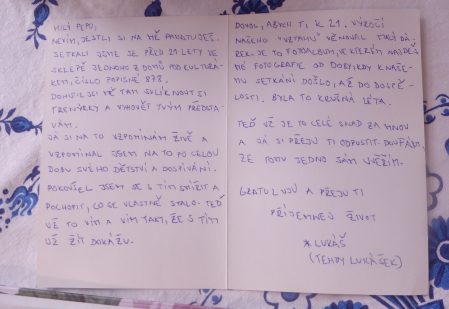 MILÝ PEPO,
NEVÍM, JESTLI SI NA MĚ PAMATUJEŠ.
SETKALI JSME SE PŘED 21 LETY VE
SKLEPĚ JEDNOHO Z DOMŮ POD KULTUR
ÁKEM, ČÍSLO POPISNÉ 878.
DONUTIL JSI MĚ TAM SVLÍKNOUT SI
TRENÝRKY A VYHOVĚT TVÝM PŘEDSTA-
VÁM.
JÁ SI NA TO VZPOMÍNÁM ŽIVĚ A
VZPOMÍNAL JSEM NA TO PO CELOU
DOBU SVÉHO DĚTSTVÍ A DOSPÍVÁNÍ.
POKOUŠEL JSEM SE S TÍM SMÍŘIT A
POCHOPIT, CO SE VLASTNĚ STALO. TEĎ
UŽ TO VÍM A VÍM TAKY, ŽE S TÍM
UŽ ŽÍT DOKÁŽU.
DOVOL, ABYCH TI K 21. VÝROČÍ
NAŠEHO "VZTAHU" VĚNOVAL TENTO DÁ-
REK. JE TO FOTOALBUM, VE KTERÉM NAJDEŠ
MÉ FOTOGRAFIE OD DOBY, KDY K NAŠE-
MU SETKÁNÍ DOŠLO, AŽ DO DOSPĚ-
LOSTI. BYLA TO KRUŠNÁ LÉTA.
TEĎ UŽ JE TO CELÉ SNAD ZA MNOU
A JÁ SI PŘEJU TI ODPUSTIT. DOUFÁM,
ŽE TOMU JEDNO SÁM UVĚŘÍM.
GRATULUJU A PŘEJU TI
PŘÍJEMNEJ ŽIVOT
LUKÁŠ
(TEHDY LUKÁŠEK)